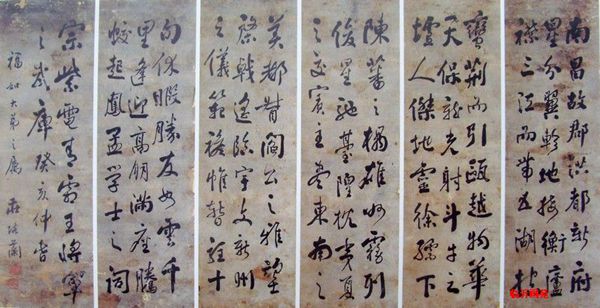 南昌故郡洪都新府
星分翼軫地接衡廬
襟三江而帶五湖控
蠻荊而引甌越物華
天保龍光射斗牛之
墟人傑地靈徐孺下
陳蕃之榻雄州霧列
俊星馳臺隍枕夷夏
之交賓主盡東南之
美都督閻公之雅望
棨戟遙臨宇文新州
之儀範襜帷暫駐十
旬休暇勝友如雲千
里逢迎高朋滿座騰
蛟起鳳孟學士之詞
宗紫電青霜王將軍
之武庫癸亥仲春
福如大弟之屬